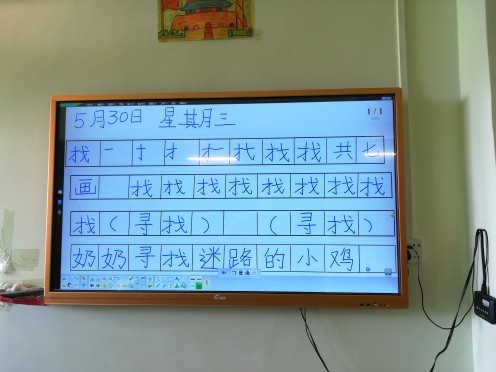 5月30日 星其月三
1/1
找 一 扌 找 找 共 七
画 找 找 找 找 找 找 找 找
找（寻找） （寻找）
奶奶寻找迷路的小鸡。